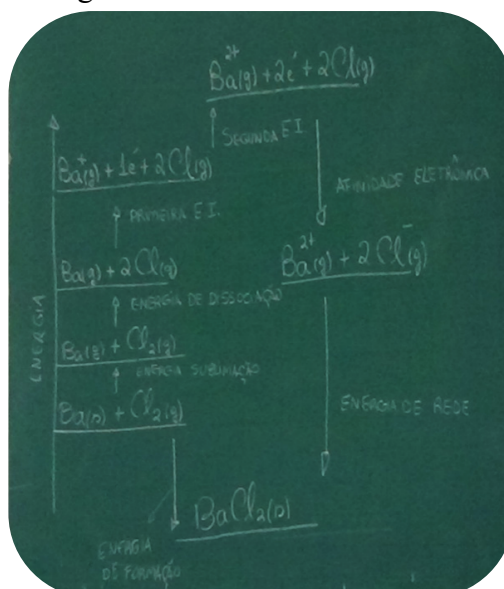 Ba²⁺(g) + 2é + 2Cl(g)
SEGUNDA E.I.
Ba⁺(g) + 1é + 2Cl(g)
AFINIDADE ELETRÔNICA
PRIMEIRA E.I.
Ba(g) + 2Cl(g)
Ba²⁺(g) + 2Cl⁻(g)
ENERGIA DE DISSOCIAÇÃO
ENERGIA
Ba(g) + Cl₂(g)
ENERGIA SUBLIMAÇÃO
Ba(s) + Cl₂(g)
ENERGIA DE REDE
BaCl₂(s)
ENERGIA
DE FORMAÇÃO